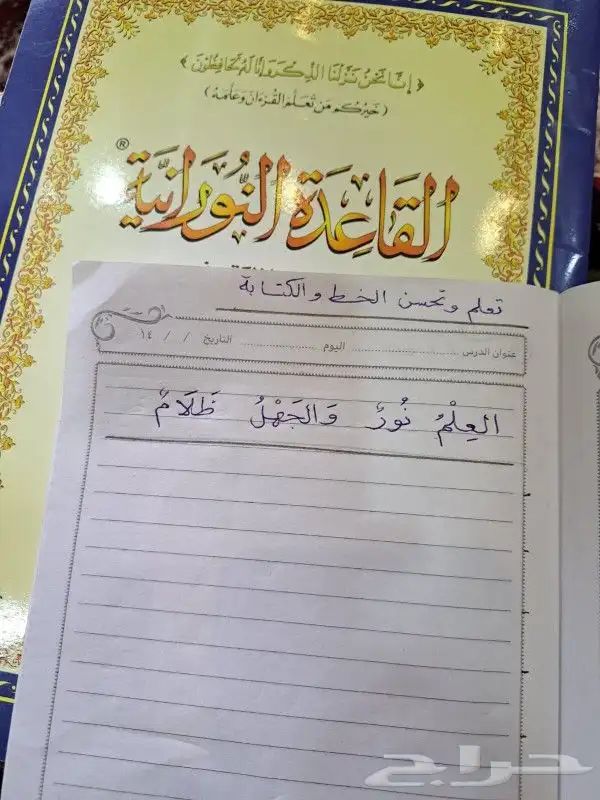 ﴿ إِنَّا نَحْنُ نَزَّلْنَا الذِّكْرَ وَإِنَّا لَهُ لَحَافِظُونَ ﴾
( خَيْرُكُمْ مَنْ تَعَلَّمَ القُرْءَانَ وَعَلَّمَهُ )
القَاعِدَةُ النُّورَانِيَّة ®
تعلم وتحسن الخط والكتابة
عنوان الدرس .................... اليوم .................... التاريخ / / ١٤
العِلْمُ نُورٌ وَالجَهْلُ ظَلَامٌ
حراج